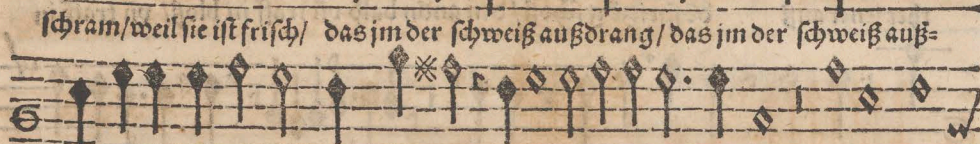 schram/weil sie ist frisch/ das jm der schweiß außdrang/ das jm der schweiß auß⸗